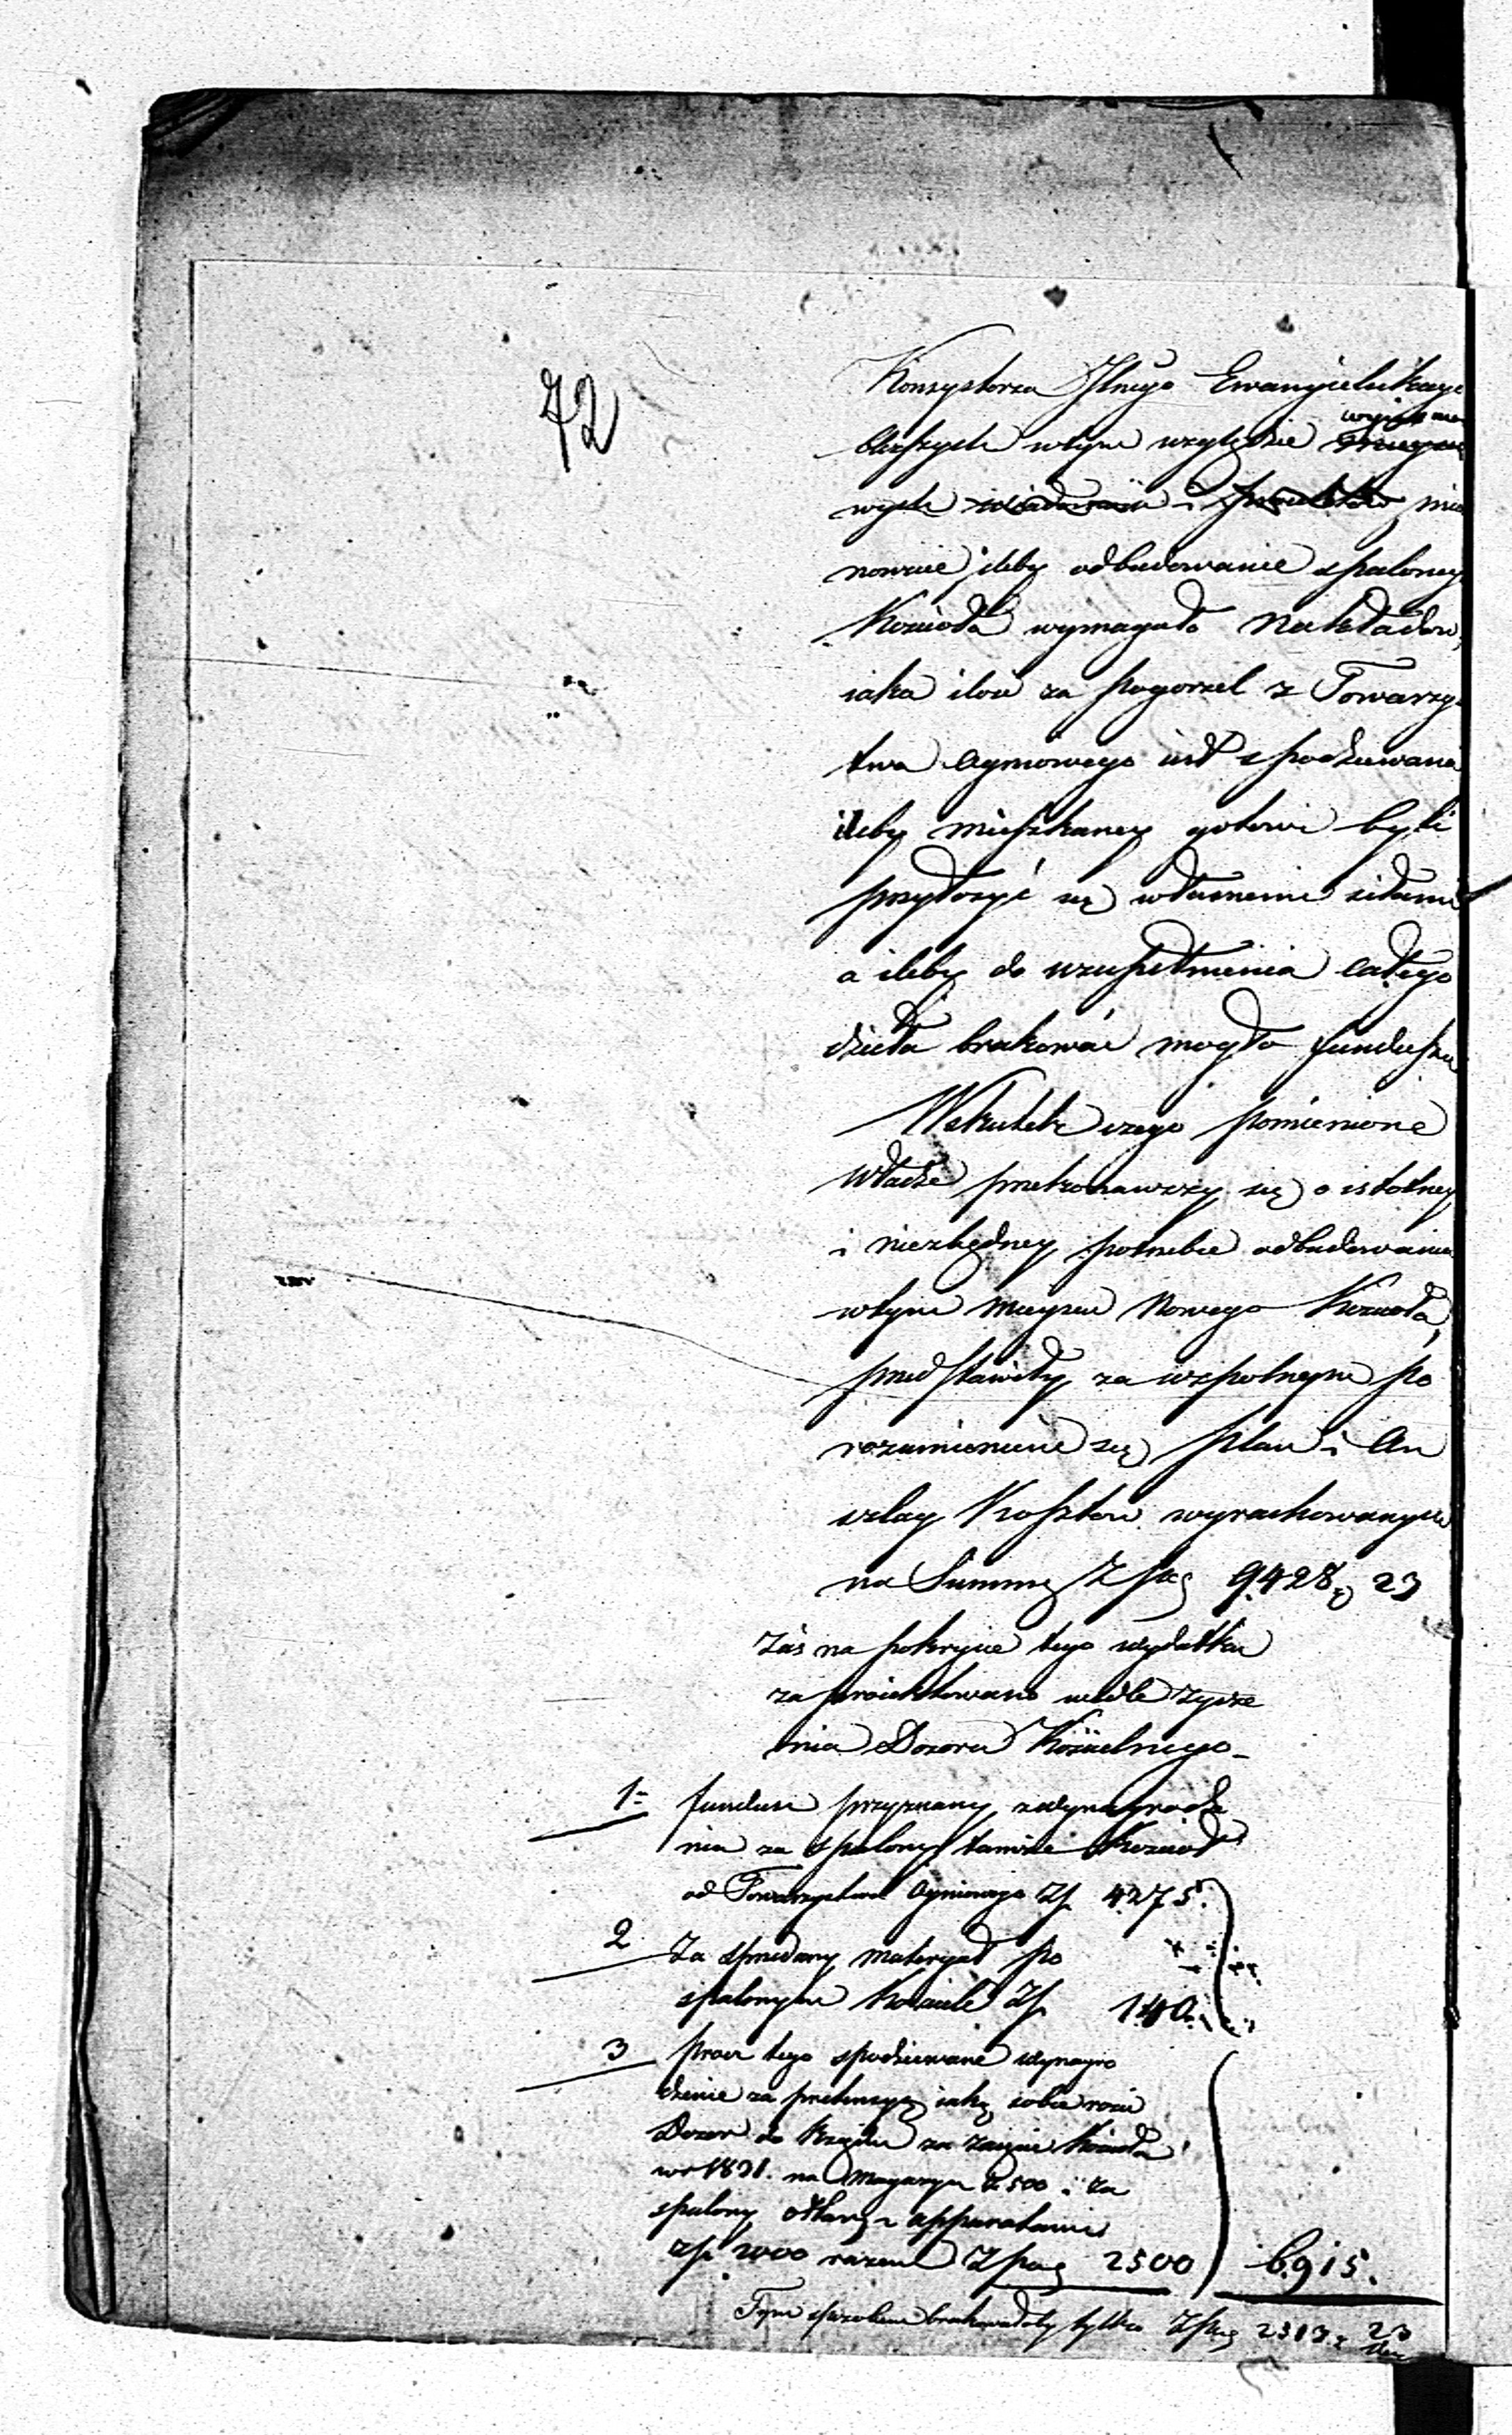 72
Konsystorza Jlnego Ewangielickiego
bliższych wtym względzie
wych
nowicie ileby odbudowanie spaloney
Kościoła wymagało Nakładow,
iaka ilość za pogorzel z Towarzy
twa ogniowego iest spodziewana
ileby mieszkancy gotowi byli
przyłożyć się własnemi siłami
a ileby do uzupełnienia całego
dzieła brakować mogło funduszu
Wskutek czego pomienione
Władze przekonawszy się o istotney
i niezbędney potrzebie odbudowania
wtym mieyscu Nowego Kościoła,
przedstawiły za wspolnym po
rozumieniem się plan i An
szlag Kosztow wyrachowanych
na Summę Zpg 9428, 23
Zaś na pokrycie tego wydatku
zaproiektowano wedle życze
nia Dozoru Kościelnego
1= fundusz przyznany zawynagrodze
nia za spalony tamże Kościoł
od Towarzystwa Ogniowego Zp 4275.
2 Za sprzedany materyał po
spalonym Kościele Zp 140.
3 procz tego spodziewane wynagro
dzenie za pretensyą iaką sobie rości
Dozor do Rządu za zaięcie Kościoła
w r 1831. na Magazyn Z 500 i za
spalony ołtarz z apparatami
zp 2000 razem Zpg 2500 6915.
Tym sposobem brakowałoby tylko Zpg 2513 23